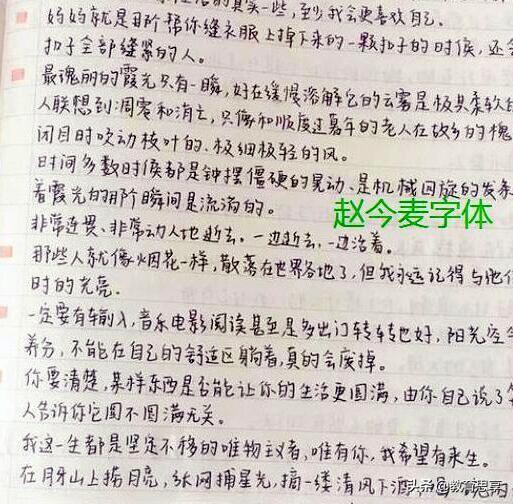 妈妈就是那个帮你缝衣服上掉下来的一颗扣子的时候,还会
扣子全部缝紧的人。
最瑰丽的霞光只有一瞬,好在缓慢溶解它的云雾是极其柔软的
人联想到凋零和消亡,只像和顺度过暮年的老人在故乡的槐
闭目时吹动枝叶的、极细极轻的风。
时间多数时候都是钟摆僵硬的晃动、是机械回旋的发条
着霞光的那个瞬间是流淌的。
赵今麦字体
非常连贯、非常动人地逝去。一边逝去,一边活着。
那些人就像烟花一样,散落在世界各地了,但我永远记得与他们
时的光亮。
一定要有输入,音乐电影阅读甚至是多出门转转也好,阳光空气
养分,不能在自己的舒适区躺着,真的会废掉。
你要清楚,某样东西是否能让你的生活更圆满,由你自己说了算
人告诉你它圆不圆满无关。
我这一生都是坚定不移的唯物主义者,唯有你,我希望有来生。
在月牙山上捞月亮,张网捕星光,摘一缕清风下酒
头条@教育思哥